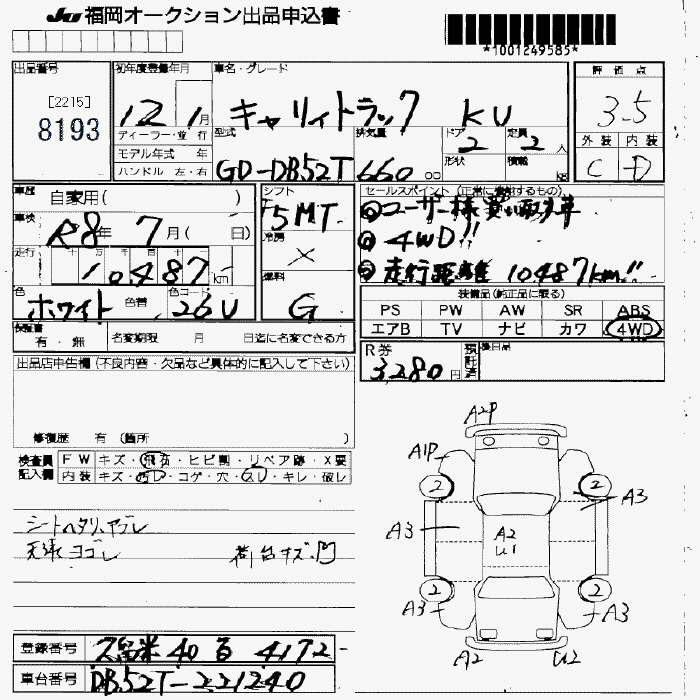 JU 福岡オークション出品申込書
*1001249585*
出品番号 [2215] 8193
初年度登録年月 12 1月
ディーラー・並行
モデル年式 年
ハンドル 左・右
車名・グレード キャリィトラック KU
型式 GD-DB52T
排気量 660 cc
ドア 2
定員 2人
形状
積載 kg
評価点 3.5
外装 内装
C D
車歴 自家用( )
車検 R8年 7月( 日)
走行 十 万 千 百 十
10487km
色 ホワイト 色替 色コード 26U
シフト F5MT
冷房 ×
燃料 G
セールスポイント(正常に作動するもの)
◎ユーザー様買い取り車
◎4WD!!
◎走行距離10487km!!
装備品(純正品に限る)
PS PW AW SR ABS
エアB TV ナビ カワ 4WD
保証書 有・無 名変期限 月 日迄に名変できる方
R券 3,280円
預託済
後日品
出品店申告欄(不良内容・欠品など具体的に記入して下さい)
修復歴 有(箇所 )
検査員 記入欄
FW キズ・飛石・ヒビ割・リペア跡・X要
内装 キズ・・コゲ・穴・・キレ・破レ
シートヘタリ、ヤブレ
天張ヨゴレ 荷台キズ、凹
A2P
A1P
2 2
A3 A3
A2
U1
2 2
A3 A3
A2 U2
登録番号 久留米 40 る 4172
車台番号 DB52T-221240